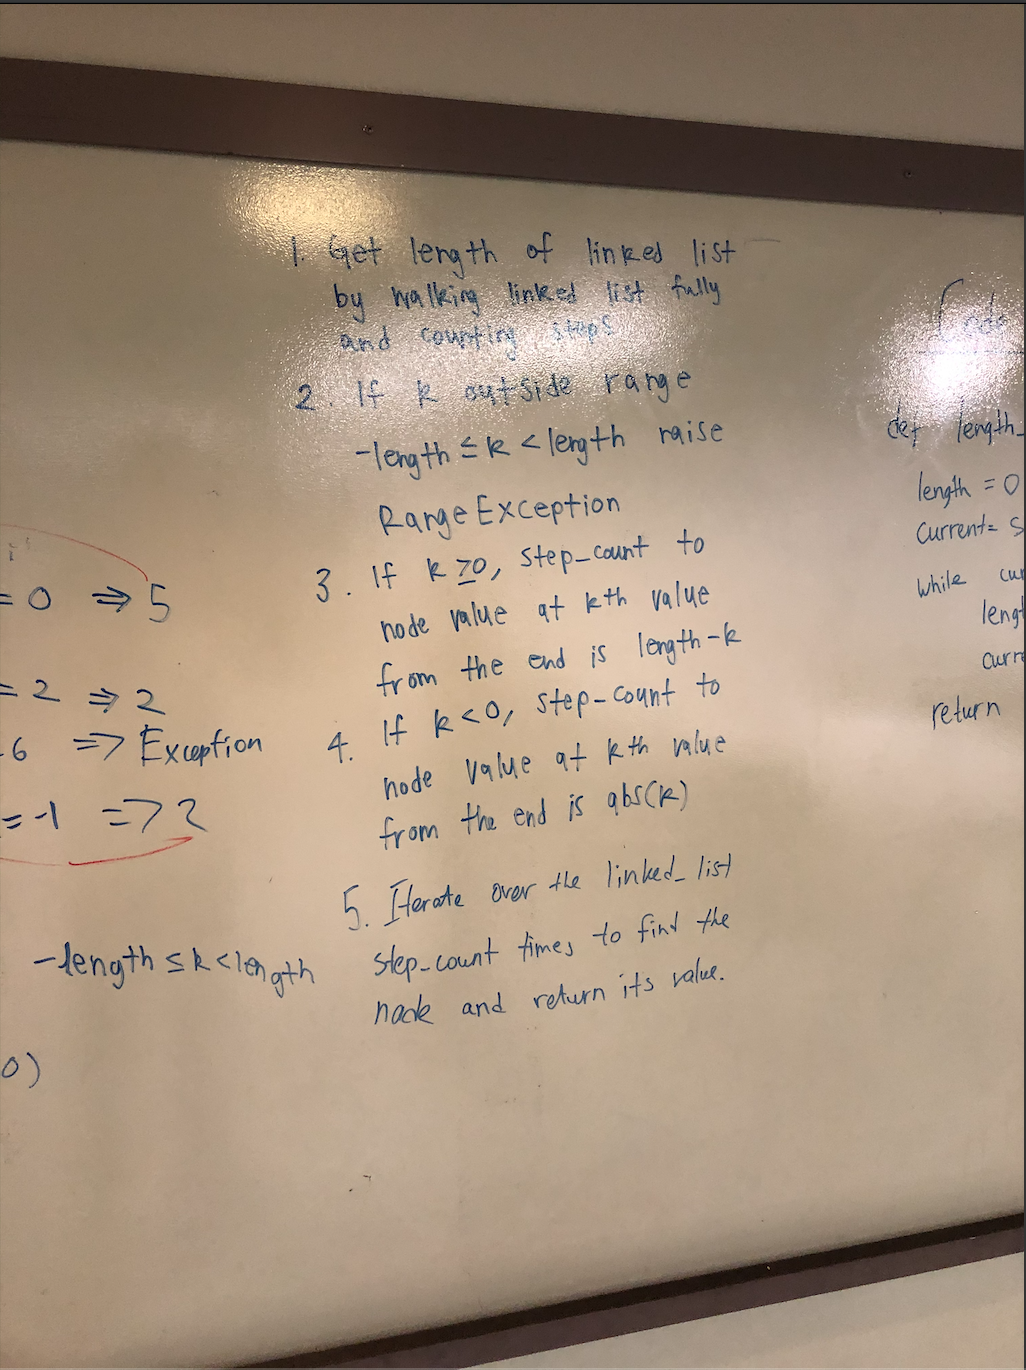 1. Get length of linked list
by walking linked list fully
and counting steps
2. If k outside range
-length ≤ k < length raise
Range Exception
3. If k ≥ 0, step_count to
node value at kth value
from the end is length-k
4. If k < 0, step-count to
node value at kth value
from the end is abs(k)
5. Iterate over the linked_list
step-count times to find the
node and return its value.
= 0 ⇒ 5
= 2 ⇒ 2
-6 => Exception
= -1 => 2
-length ≤ k < length
0)
def length_
length = 0
current= s
while cur
lengt
curre
return